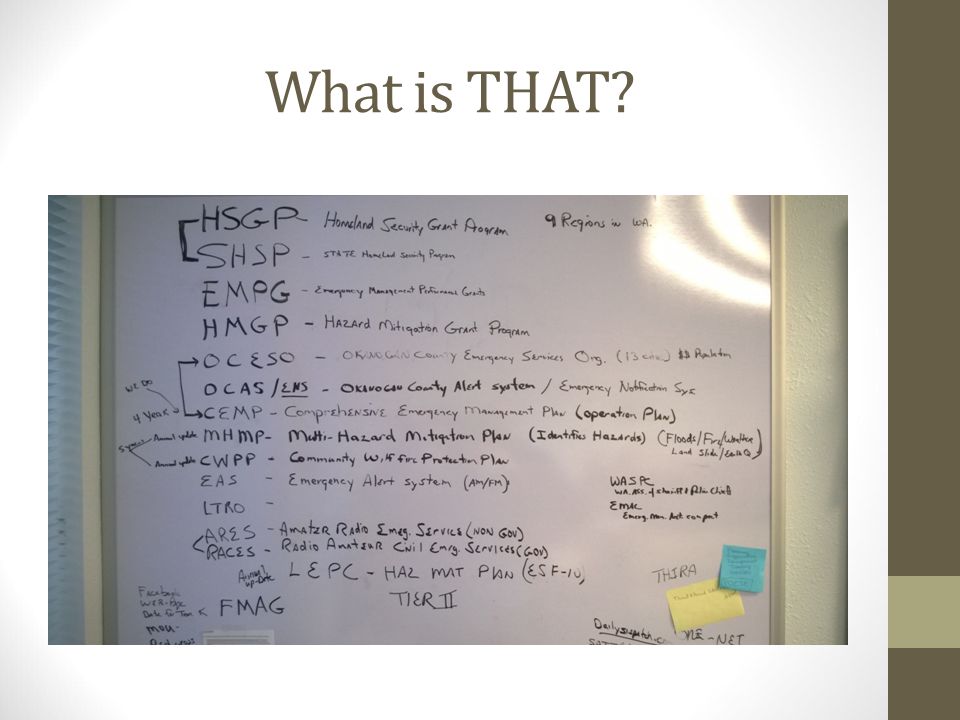 What is THAT?
HSGP - Homeland Security Grant Program 9 Regions in WA.
SHSP - STATE Homeland Security Program
EMPG - Emergency Management Performance Grants
HMGP - HAZARd Mitigation Grant Program
OCESO - OKANOGAN County Emergency Services Org. (13 cities) $$ Population
WE DO
OCAS/ENS - OKANOGAN County Alert system / Emergency Notification Sys
4 Year
CEMP - Comprehensive Emergency Management Plan (operation Plan)
5 year Annual update MHMP - Multi-Hazard Mitigation Plan (Identifies Hazards) (Floods/Fire/Weather
Land Slide/Earth Q)
Annual update CWPP - Community Wildfire Protection Plan
EAS - Emergency Alert system (AM/FM)
WASPC
WA. ASS. of Sheriff & Police Chiefs
LTRO -
EMAC
Emerg. Man. Ast. compact
ARES - Amater Radio Emeg. Service (NON GOV)
RACES - Radio Amateur Civil Emrg. Services (GOV)
Annual up-Date
LEPC - HAZ MAT PLAN (ESF-10)
THIRA
Facebook
FMAG
TIER II
mou-
Daily
NET